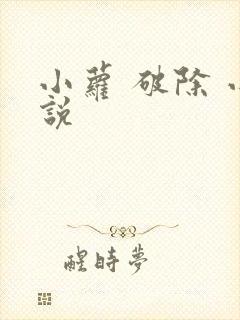 小蘿 破除 小
說
醒時夢